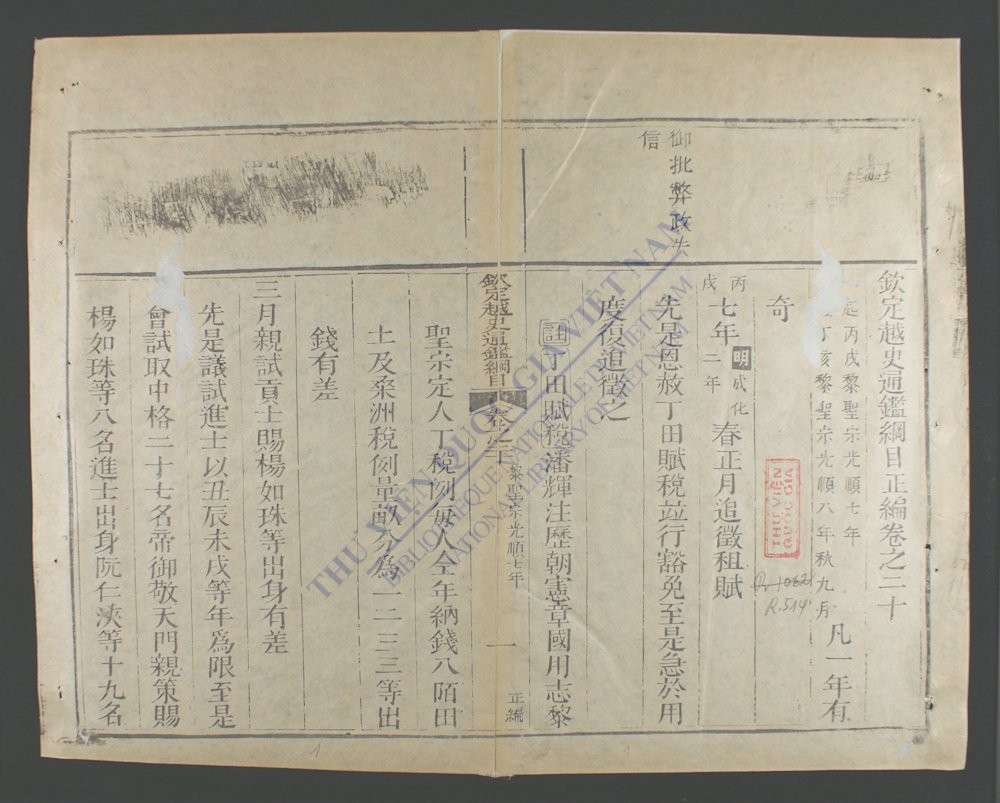 欽定越史通鑑綱目正編卷之二十
起丙戌黎聖宗光順七年
至丁亥黎聖宗光順八年秋九月
凡一年有
奇
御批弊政失
信
丙戌
七年
明成化二年
春正月追徵租賦
先是恩赦丁田賦稅竝行豁免至是急於用
度復追徵之
註丁田賦稅潘輝注歷朝憲章國用志黎
欽定越史通鑑綱目
卷之二十
黎聖宗光順七年
一
正編
聖宗定人丁稅例每人全年納錢八陌田
土及桑洲稅例量畝分為一二三等出
錢有差
三月親試貢士賜楊如珠等出身有差
先是議試進士以丑辰未戌等年爲限至是
會試取中格二十七名帝御敬天門親策賜
楊如珠等八名進士出身阮仁浹等十九名
THƯ VIỆN
QUỐC GIA
R.1062
R.514
THƯ VIỆN QUỐC GIA VIỆT NAM
BIBLIOTHÈQUE NATIONALE DU VIETNAM
NATIONAL LIBRARY OF VIETNAM